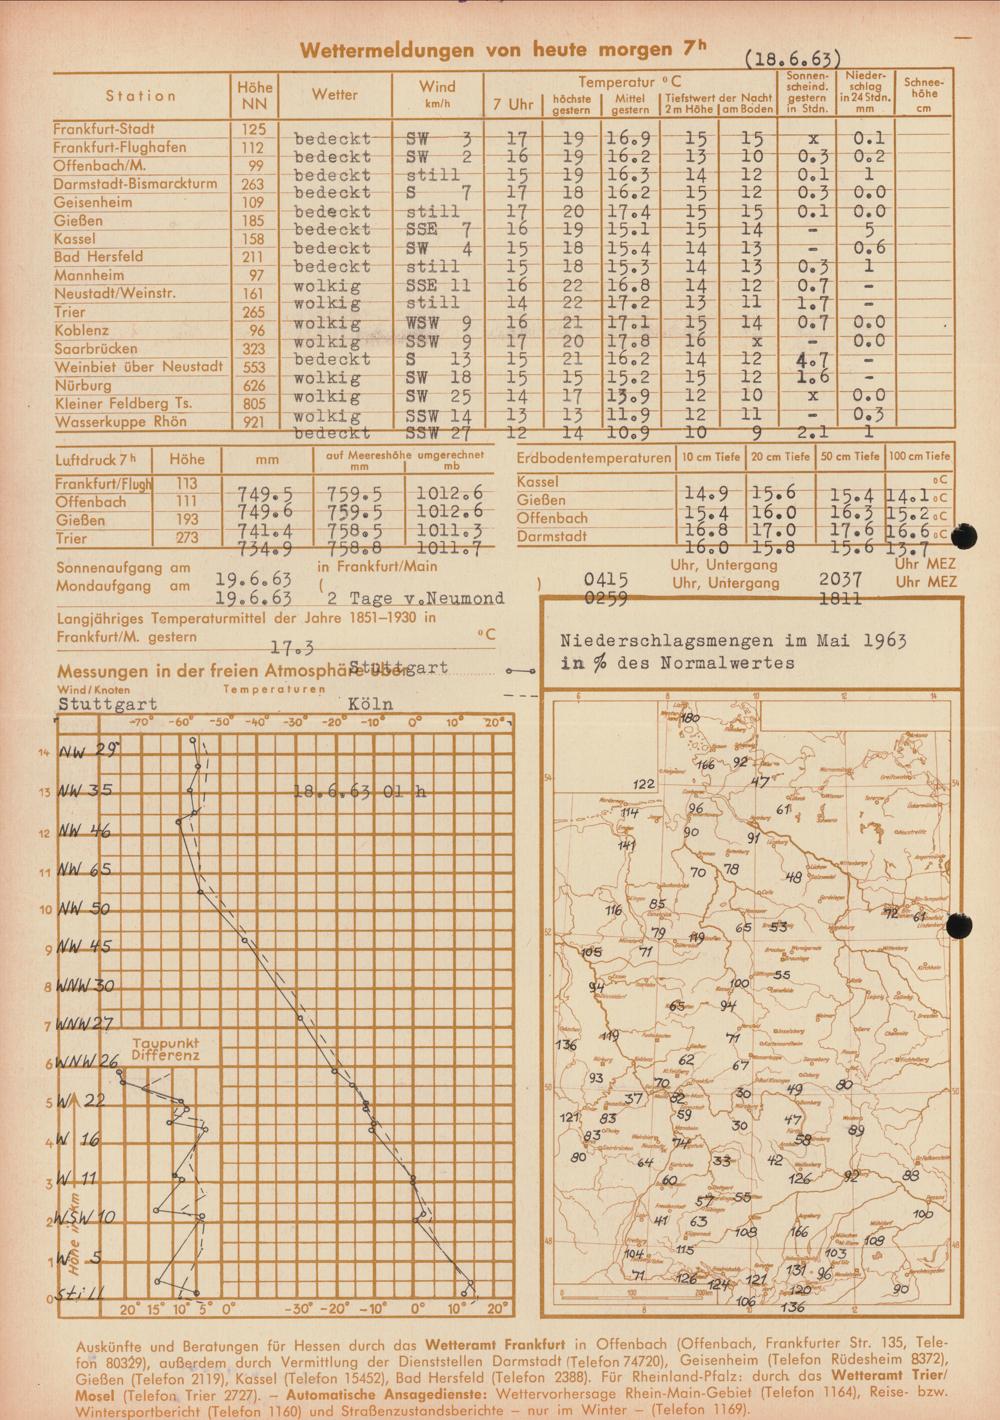 Wettermeldungen von heute morgen 7ʰ
(18.6.63)
Station Höhe NN Wetter Wind km/h Temperatur °C Sonnenscheind. gestern in Stdn. Niederschlag in 24 Stdn. mm Schneehöhe cm
7 Uhr höchste gestern Mittel gestern Tiefstwert der Nacht 2 m Höhe am Boden
Frankfurt-Stadt 125 bedeckt SW 3 17 19 16.9 15 15 x 0.1
Frankfurt-Flughafen 112 bedeckt SW 2 16 19 16.2 13 10 0.3 0.2
Offenbach/M. 99 bedeckt still 15 19 16.3 14 12 0.1 1
Darmstadt-Bismarckturm 263 bedeckt S 7 17 18 16.2 15 12 0.3 0.0
Geisenheim 109 bedeckt still 17 20 17.4 15 15 0.1 0.0
Gießen 185 bedeckt SSE 7 16 19 15.1 15 14 – 5
Kassel 158 bedeckt SW 4 15 18 15.4 14 13 – 0.6
Bad Hersfeld 211 bedeckt still 15 18 15.3 14 13 0.3 1
Mannheim 97 wolkig SSE 11 16 22 16.8 14 12 0.7 –
Neustadt/Weinstr. 161 wolkig still 14 22 17.2 13 11 1.7 –
Trier 265 wolkig WSW 9 16 21 17.1 15 14 0.7 0.0
Koblenz 96 wolkig SSW 9 17 20 17.8 16 x – 0.0
Saarbrücken 323 bedeckt S 13 15 21 16.2 14 12 4.7 –
Weinbiet über Neustadt 553 wolkig SW 18 15 15 15.2 15 12 1.6 –
Nürburg 626 bedeckt SW 25 14 17 13.9 12 10 x 0.0
Kleiner Feldberg Ts. 805 wolkig SSW 14 13 13 11.9 12 11 – 0.3
Wasserkuppe Rhön 921 bedeckt SSW 27 12 14 10.9 10 9 2.1 1
Luftdruck 7ʰ Höhe mm auf Meereshöhe umgerechnet mm mb
Frankfurt/Flugh 113 749.5 759.5 1012.6
Offenbach 111 749.6 759.5 1012.6
Gießen 193 741.4 758.5 1011.3
Trier 273 734.9 758.8 1011.7
Erdbodentemperaturen 10 cm Tiefe 20 cm Tiefe 50 cm Tiefe 100 cm Tiefe
Kassel 14.9 15.6 15.4 14.1 °C
Gießen 15.4 16.0 16.3 15.2 °C
Offenbach 16.8 17.0 17.6 16.6 °C
Darmstadt 16.0 15.8 15.6 13.7
Sonnenaufgang am 19.6.63 in Frankfurt/Main 0415 Uhr, Untergang 2037 Uhr MEZ
Mondaufgang am 19.6.63 ( 2 Tage v.Neumond ) 0259 Uhr, Untergang 1811 Uhr MEZ
Langjähriges Temperaturmittel der Jahre 1851–1930 in
Frankfurt/M. gestern 17.3 °C
Messungen in der freien Atmosphäre über Stuttgart
Wind/Knoten Temperaturen
Stuttgart Köln
-70° -60° -50° -40° -30° -20° -10° 0° 10° 20°
14 NW 29
13 NW 35 18.6.63 01 h
12 NW 46
11 NW 65
10 NW 50
9 NW 45
8 WNW 30
7 WNW 27
Taupunkt
Differenz
6 WNW 26
5 W 22
4 W 16
3 W 11
2 WSW 10
1 W 5
0 still
Höhe in km
20° 15° 10° 5° 0° -30° -20° -10° 0° 10° 20°
Niederschlagsmengen im Mai 1963
in % des Normalwertes
6 8 10 12 14
180
166 92
122 47
114 96 61
141 90 91
70 78 48
116 85 72 61
79 119 65 53
105 71
94 100 55
65 94
136 119 71
62 67
93 70 30 49 80
37 82
121 83 59 30 47 89
83 74 58
80 64 33 42
60 126 92 88
57 55
41 63 108 166 100
108
104 115 103
71 126 124 121 131 96
120 90
106 136
Auskünfte und Beratungen für Hessen durch das Wetteramt Frankfurt in Offenbach (Offenbach, Frankfurter Str. 135, Tele-
fon 80329), außerdem durch Vermittlung der Dienststellen Darmstadt (Telefon 74720), Geisenheim (Telefon Rüdesheim 8372),
Gießen (Telefon 2119), Kassel (Telefon 15452), Bad Hersfeld (Telefon 2388). Für Rheinland-Pfalz: durch das Wetteramt Trier/
Mosel (Telefon Trier 2727). – Automatische Ansagedienste: Wettervorhersage Rhein-Main-Gebiet (Telefon 1164), Reise- bzw.
Wintersportbericht (Telefon 1160) und Straßenzustandsberichte – nur im Winter – (Telefon 1169).